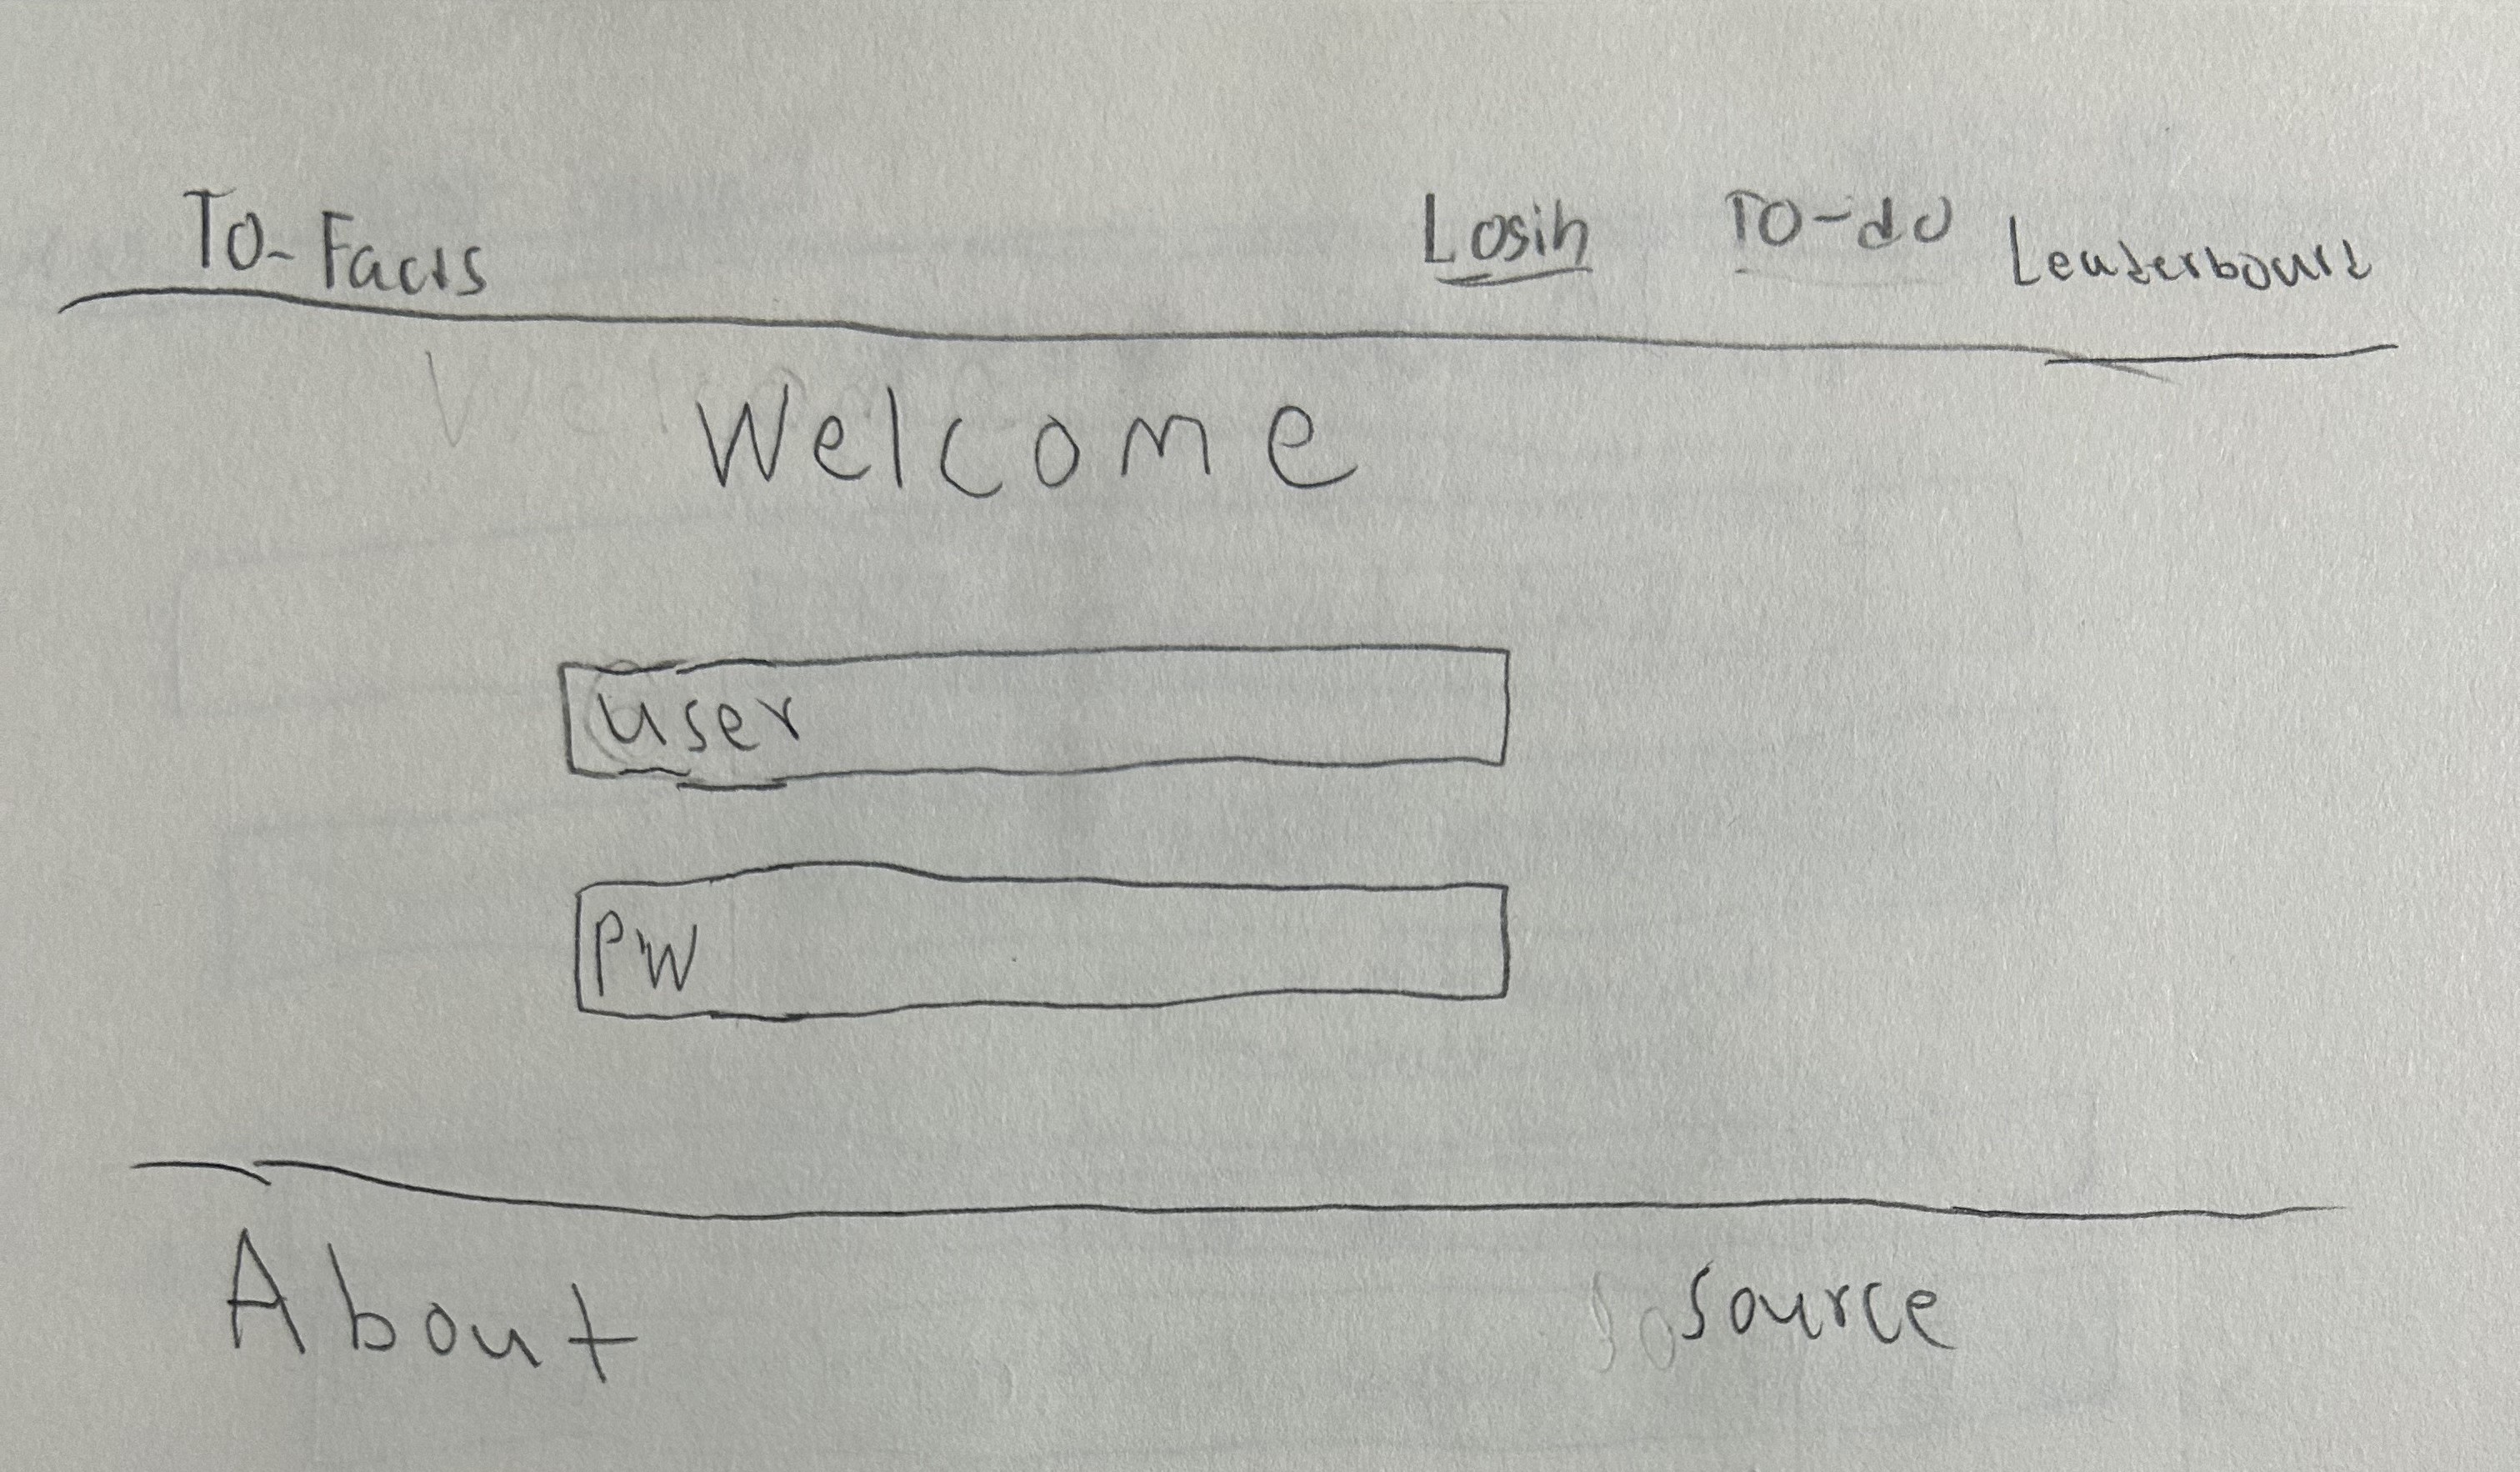 To-Facts Login To-do Leaderboard
Welcome
user
PW
About Source